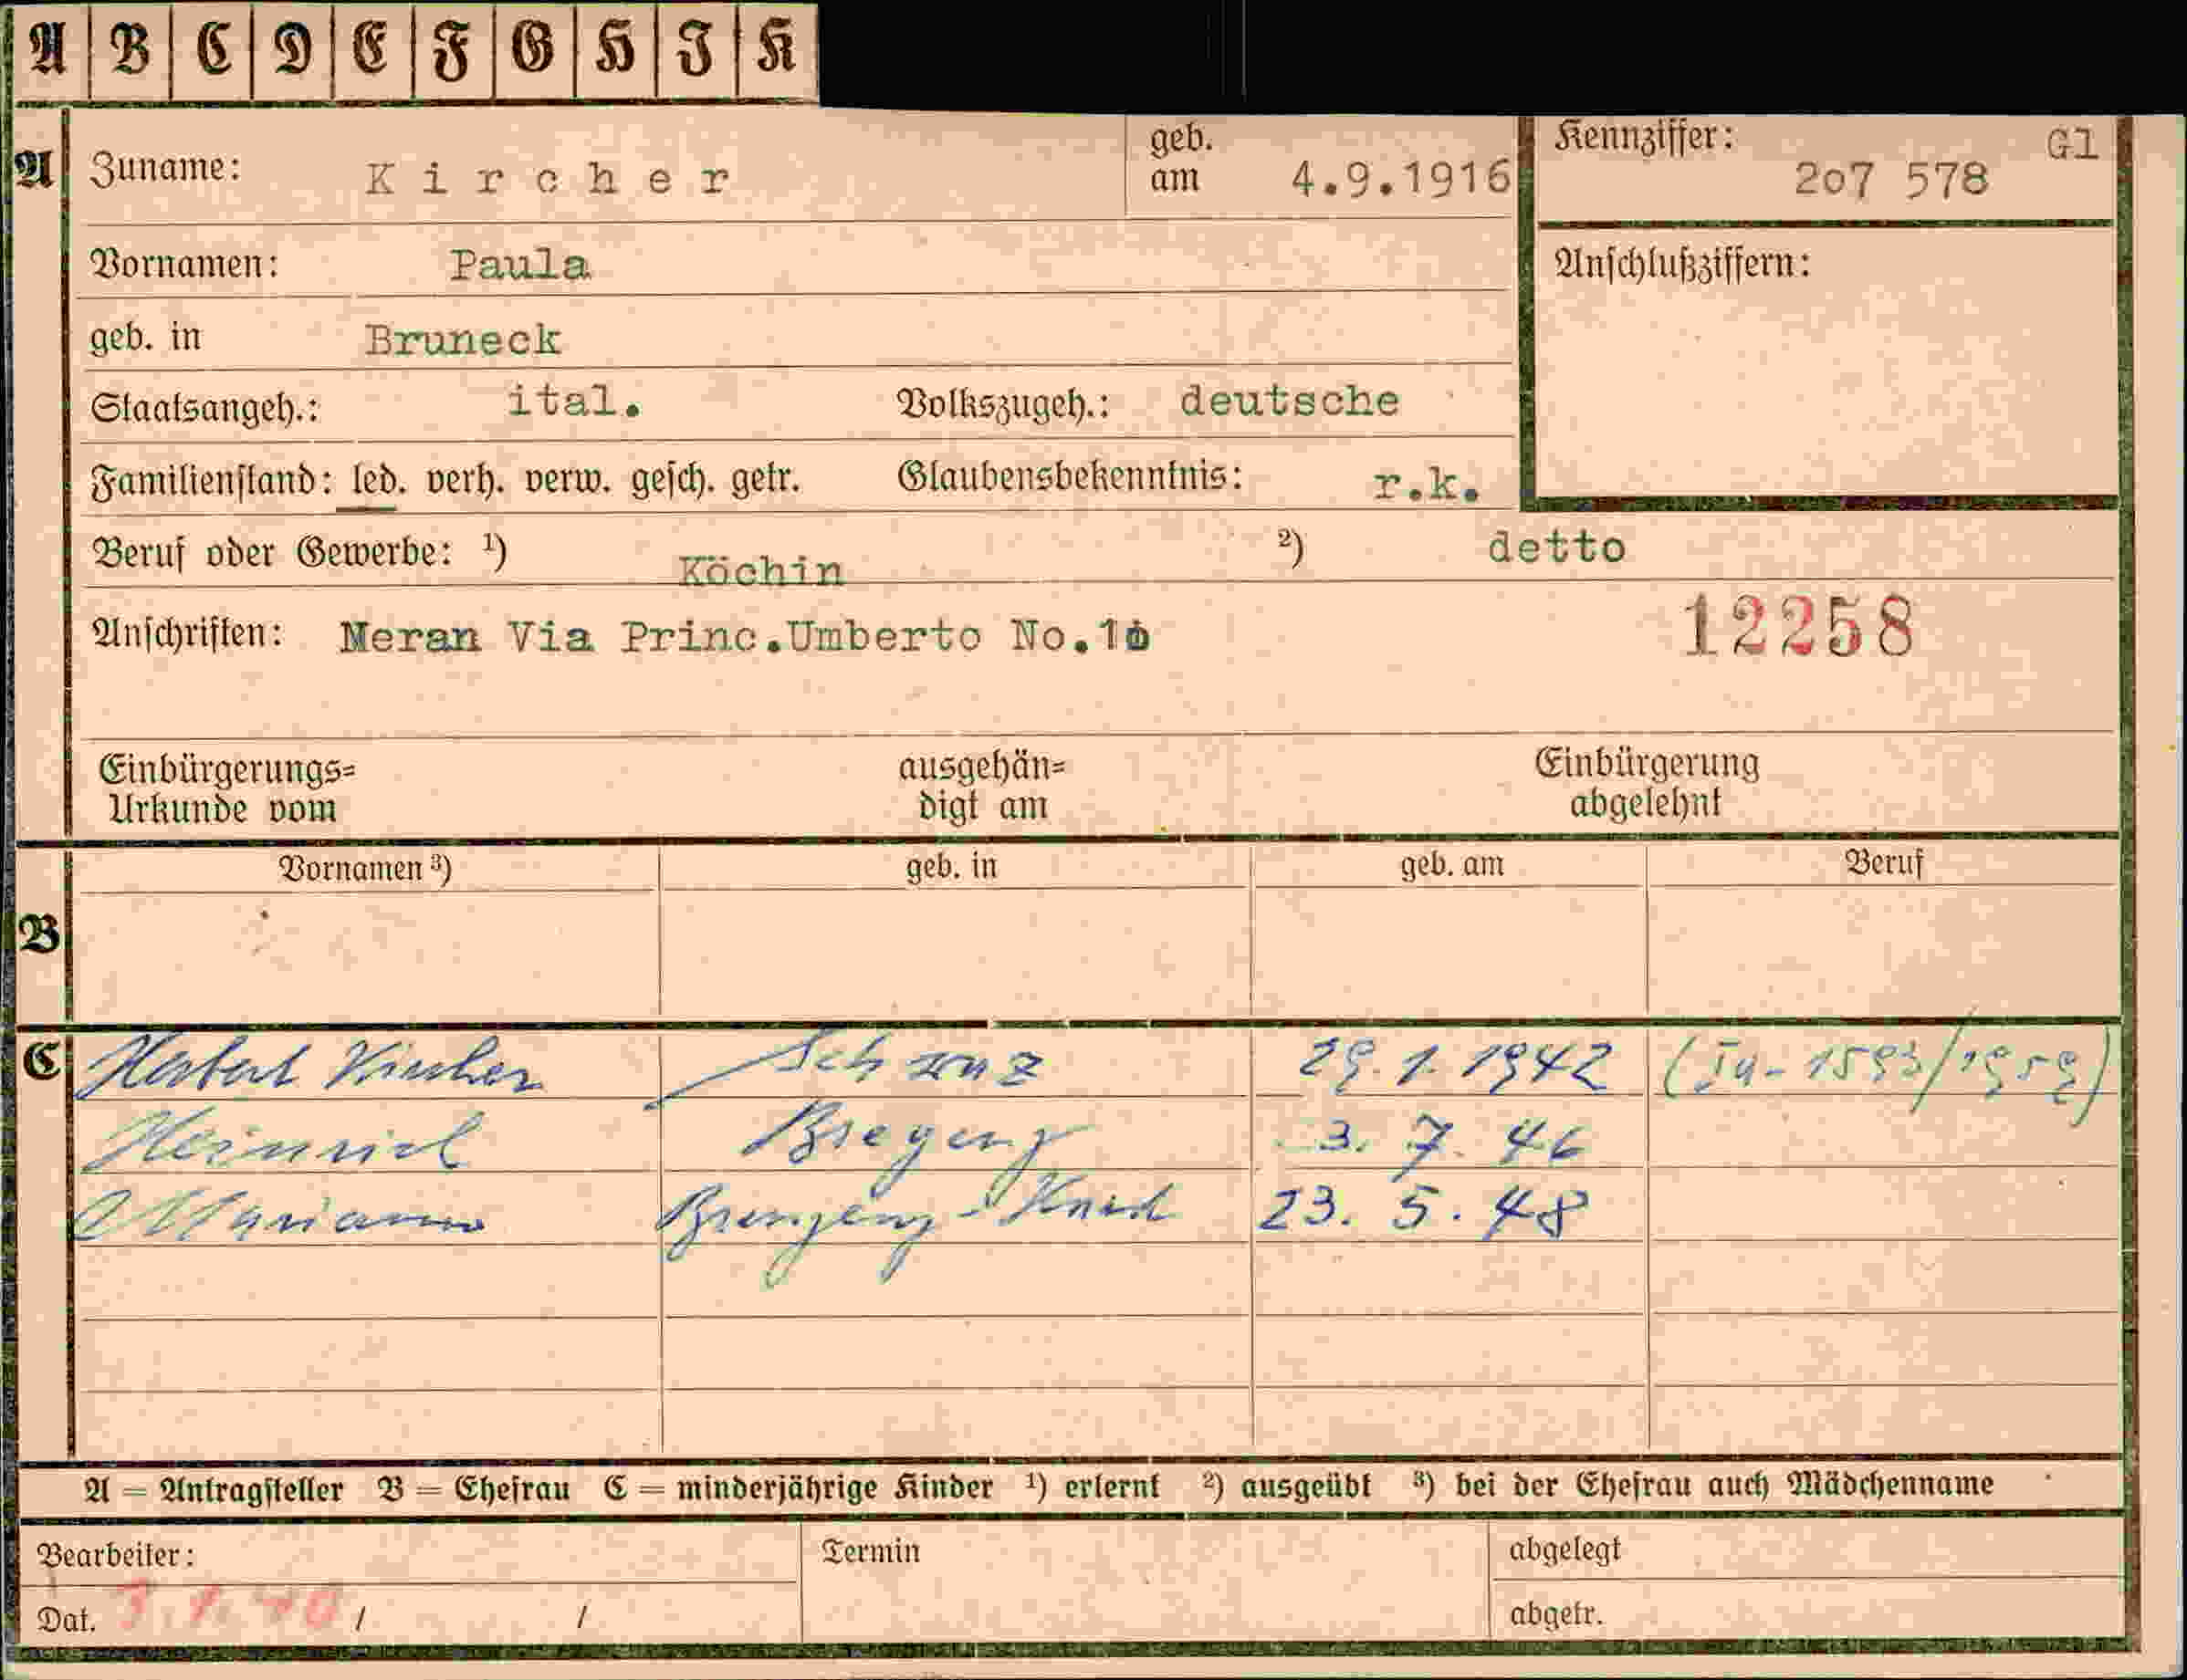 A B C D E F G H I K
A Zuname: Kircher geb. am 4.9.1916 Kennziffer: 2o7 578 Gl
Vornamen: Paula Anschlußziffern:
geb. in Bruneck
Staatsangeh.: ital. Volkszugeh.: deutsche
Familienstand: led. verh. verw. gesch. getr. Glaubensbekenntnis: r.k.
Beruf oder Gewerbe: ¹) Köchin ²) detto
Anschriften: Meran Via Princ.Umberto No.
12258
Einbürgerungs=
Urkunde vom
ausgehän=
digt am
Einbürgerung
abgelehnt
Vornamen ³) geb. in geb. am Beruf
B
C Herbert Kircher 29.1.1942
Heinrich Bregenz 3. 7. 46
23. 5. 48
A = Antragsteller B = Ehefrau C = minderjährige Kinder ¹) erlernt ²) ausgeübt ³) bei der Ehefrau auch Mädchenname
Bearbeiter: Termin abgelegt
Dat. / / abgetr.